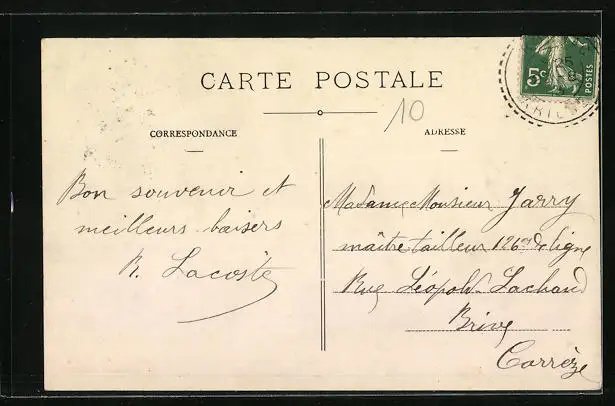 CARTE POSTALE
10
CORRESPONDANCE
ADRESSE
5c
POSTES
25
Bon souvenir et
meilleurs baisers
R. Lacoste
Madame Monsieur Jarry
maître tailleur 126e de ligne
Rue Léopold Lachaud
Brive
Corrèze